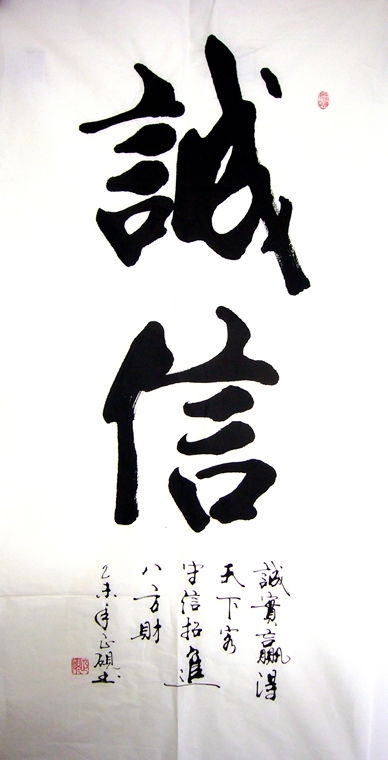 誠信
誠實贏得
天下客
守信招進
八方財
乙未年正碩书